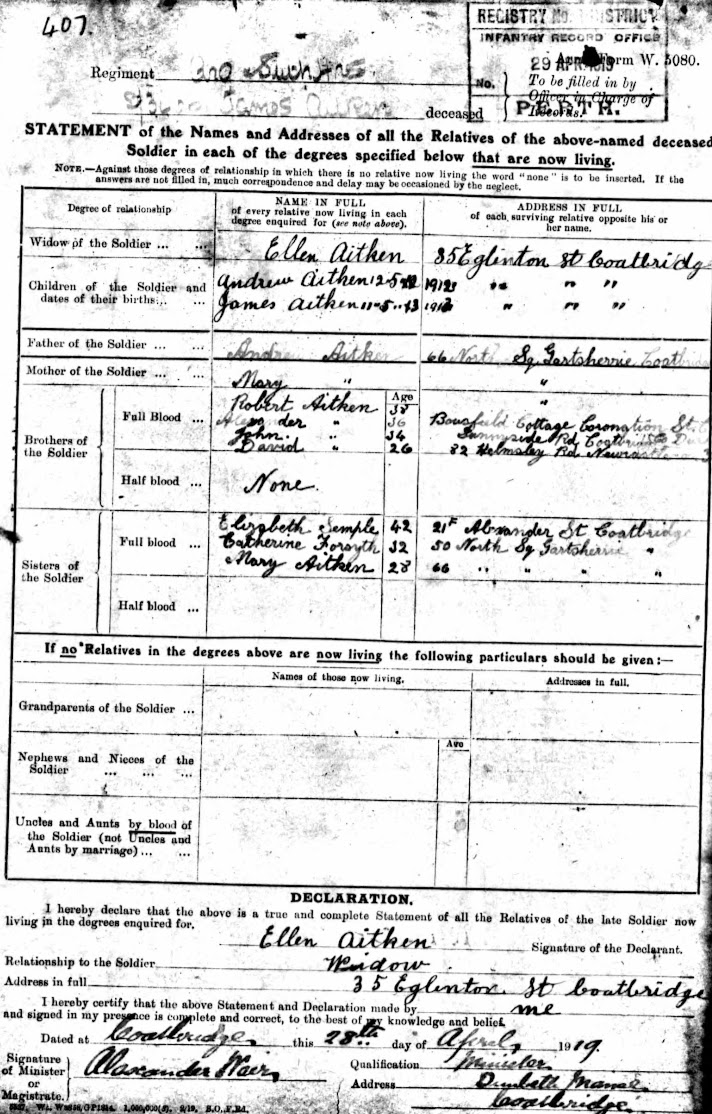 407.
REGISTRY No. 1 DISTRICT
INFANTRY RECORD OFFICE
29 APR 1919
Army Form W. 5080.
No.
PERTH.
To be filled in by
Officer in Charge of
Records.
Regiment 2nd
James Aitken deceased
STATEMENT of the Names and Addresses of all the Relatives of the above-named deceased
Soldier in each of the degrees specified below that are now living.
NOTE.—Against those degrees of relationship in which there is no relative now living the word "none" is to be inserted. If the
answers are not filled in, much correspondence and delay may be occasioned by the neglect.
Degree of relationship
NAME IN FULL
of every relative now living in each
degree enquired for (see note above).
ADDRESS IN FULL
of each surviving relative opposite his or
her name.
Widow of the Soldier ... ... Ellen Aitken 35 Eglinton St Coatbridge
Children of the Soldier and
dates of their births... ...
Andrew Aitken 12-5-12 1912 " " "
James Aitken 11-5-13 1913 " " "
Father of the Soldier ... ... Andrew Aitken 66 North Sq Gartsherrie Coatbridge
Mother of the Soldier ... ... Mary " "
Age
Brothers of
the Soldier
Full Blood ...
Robert Aitken 38
Alexander " 36 Cottage Coronation St.
John. " 34 Sunnyside Rd Coatbridge
David " 26 82 Helmsley Rd Newcastle
Half blood ... None.
Sisters of
the Soldier
Full blood ...
Elizabeth Semple 42 21 Alexander St Coatbridge
Catherine Forsyth 32 50 North Sq Gartsherrie "
Mary Aitken 28 66 " " " "
Half blood ...
If no Relatives in the degrees above are now living the following particulars should be given:—
Names of those now living. Addresses in full.
Grandparents of the Soldier ...
Age
Nephews and Nieces of the
Soldier ... ... ...
Uncles and Aunts by blood of
the Soldier (not Uncles and
Aunts by marriage) ... ...
DECLARATION.
I hereby declare that the above is a true and complete Statement of all the Relatives of the late Soldier now
living in the degrees enquired for.
Ellen Aitken Signature of the Declarant.
Relationship to the Soldier Widow
Address in full 35 Eglinton St Coatbridge
I hereby certify that the above Statement and Declaration made by me
and signed in my presence is complete and correct, to the best of my knowledge and belief.
Dated at Coatbridge this 28th day of April, 1919.
Signature
of Minister
or
Magistrate.
Alaxander Weir
Qualification Minister
Address Dunbeth Manse
Coatbridge